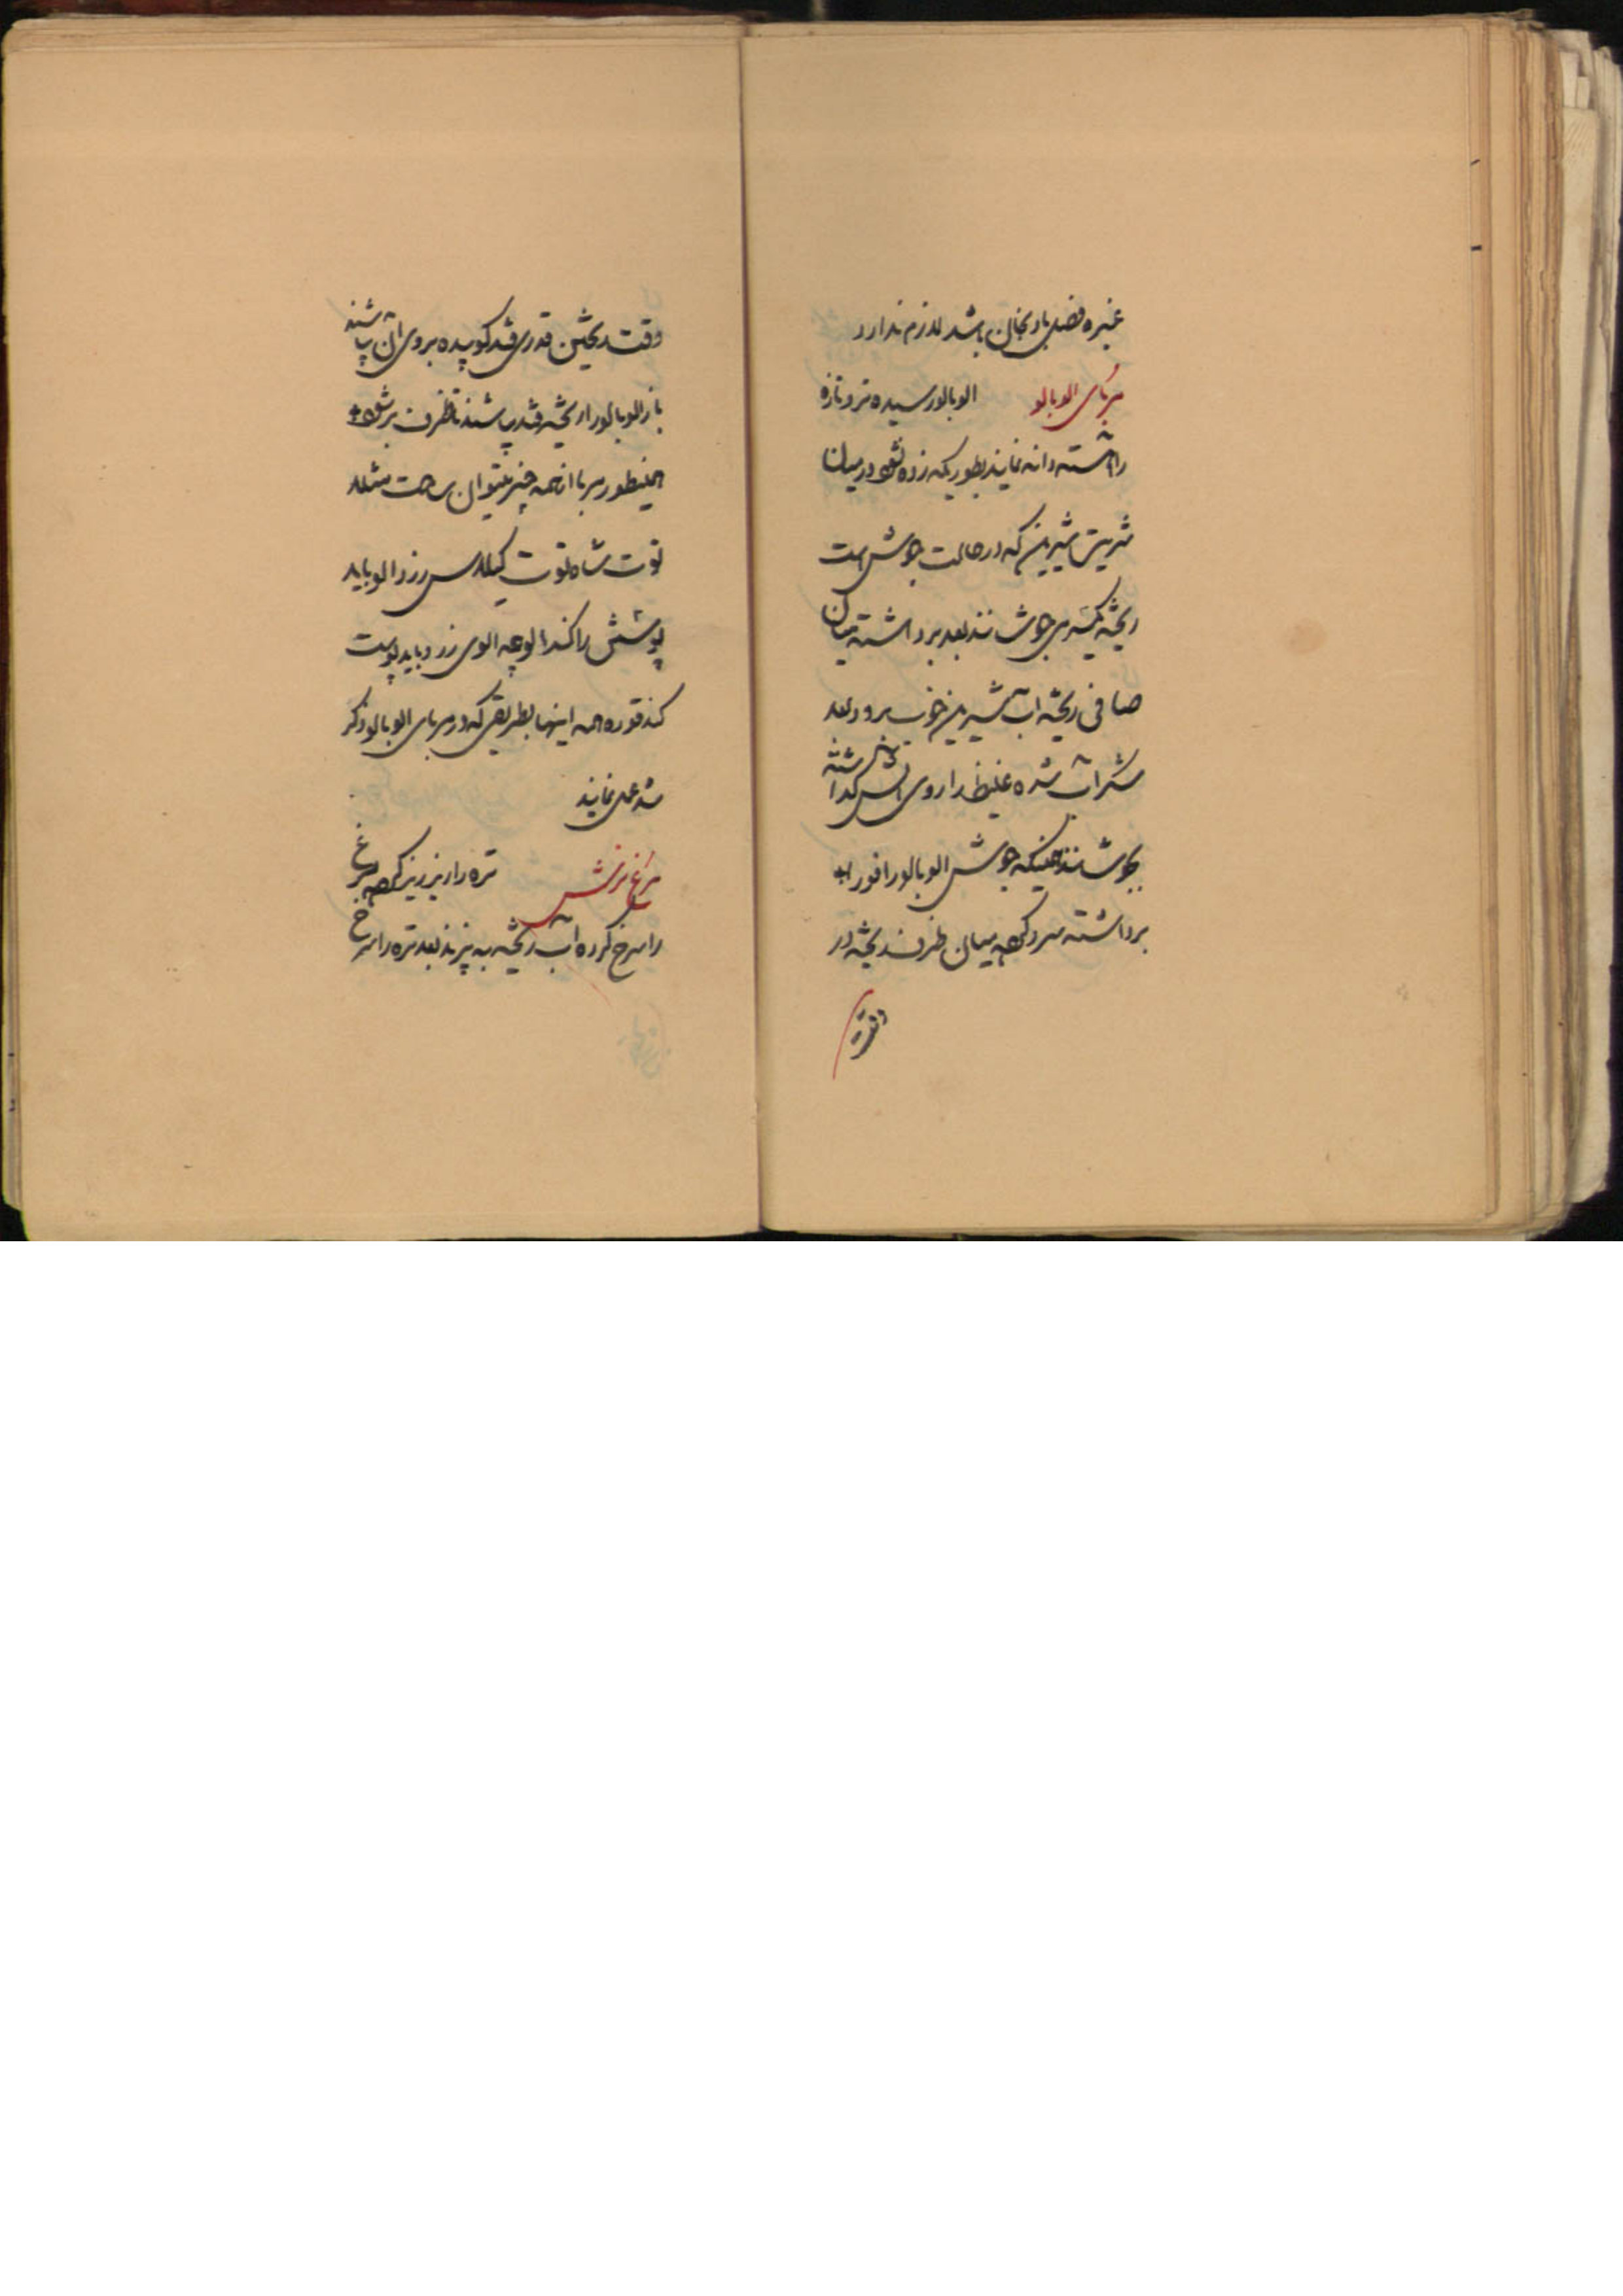 غیره فصل بادنجان باشد لازم ندارد
مربای الوبالو الوبالو رسیده تر و تازه
را شسته دانه نمایند بطوریکه زده نشود در میان
شربت شیرین که در حالت جوش است
ریخته یکسر می جوشانند بعد برداشته میان
صافی ریخته اب شیرین خوب برود بعد
شکر آب شده غلیظ را روی اتش گذاشته
بجوشانند همینکه جوش الوبالو را فورا
برداشته سرد کرده میان ظرف ریخته در
وقت
وقت ریختن قدری قند کوبیده بروی آن پاشند
باز الوبالو را ریخته قند پاشند تا ظرف پر شود
همینطور مربا از همه چیز میتوان ساخت مثلا
توت شاه توت گیلاس زردالو باید
پوستش را کند الوچه الوی زرد باید پوست
کند قوره همه اینها بطریقی که در مربای الوبالو ذکر
شد عمل نمایند
مرغ ترش تره را ریز ریز کرده مرغ
را سرخ کرده آب ریخته به پزند بعد تره را سرخ